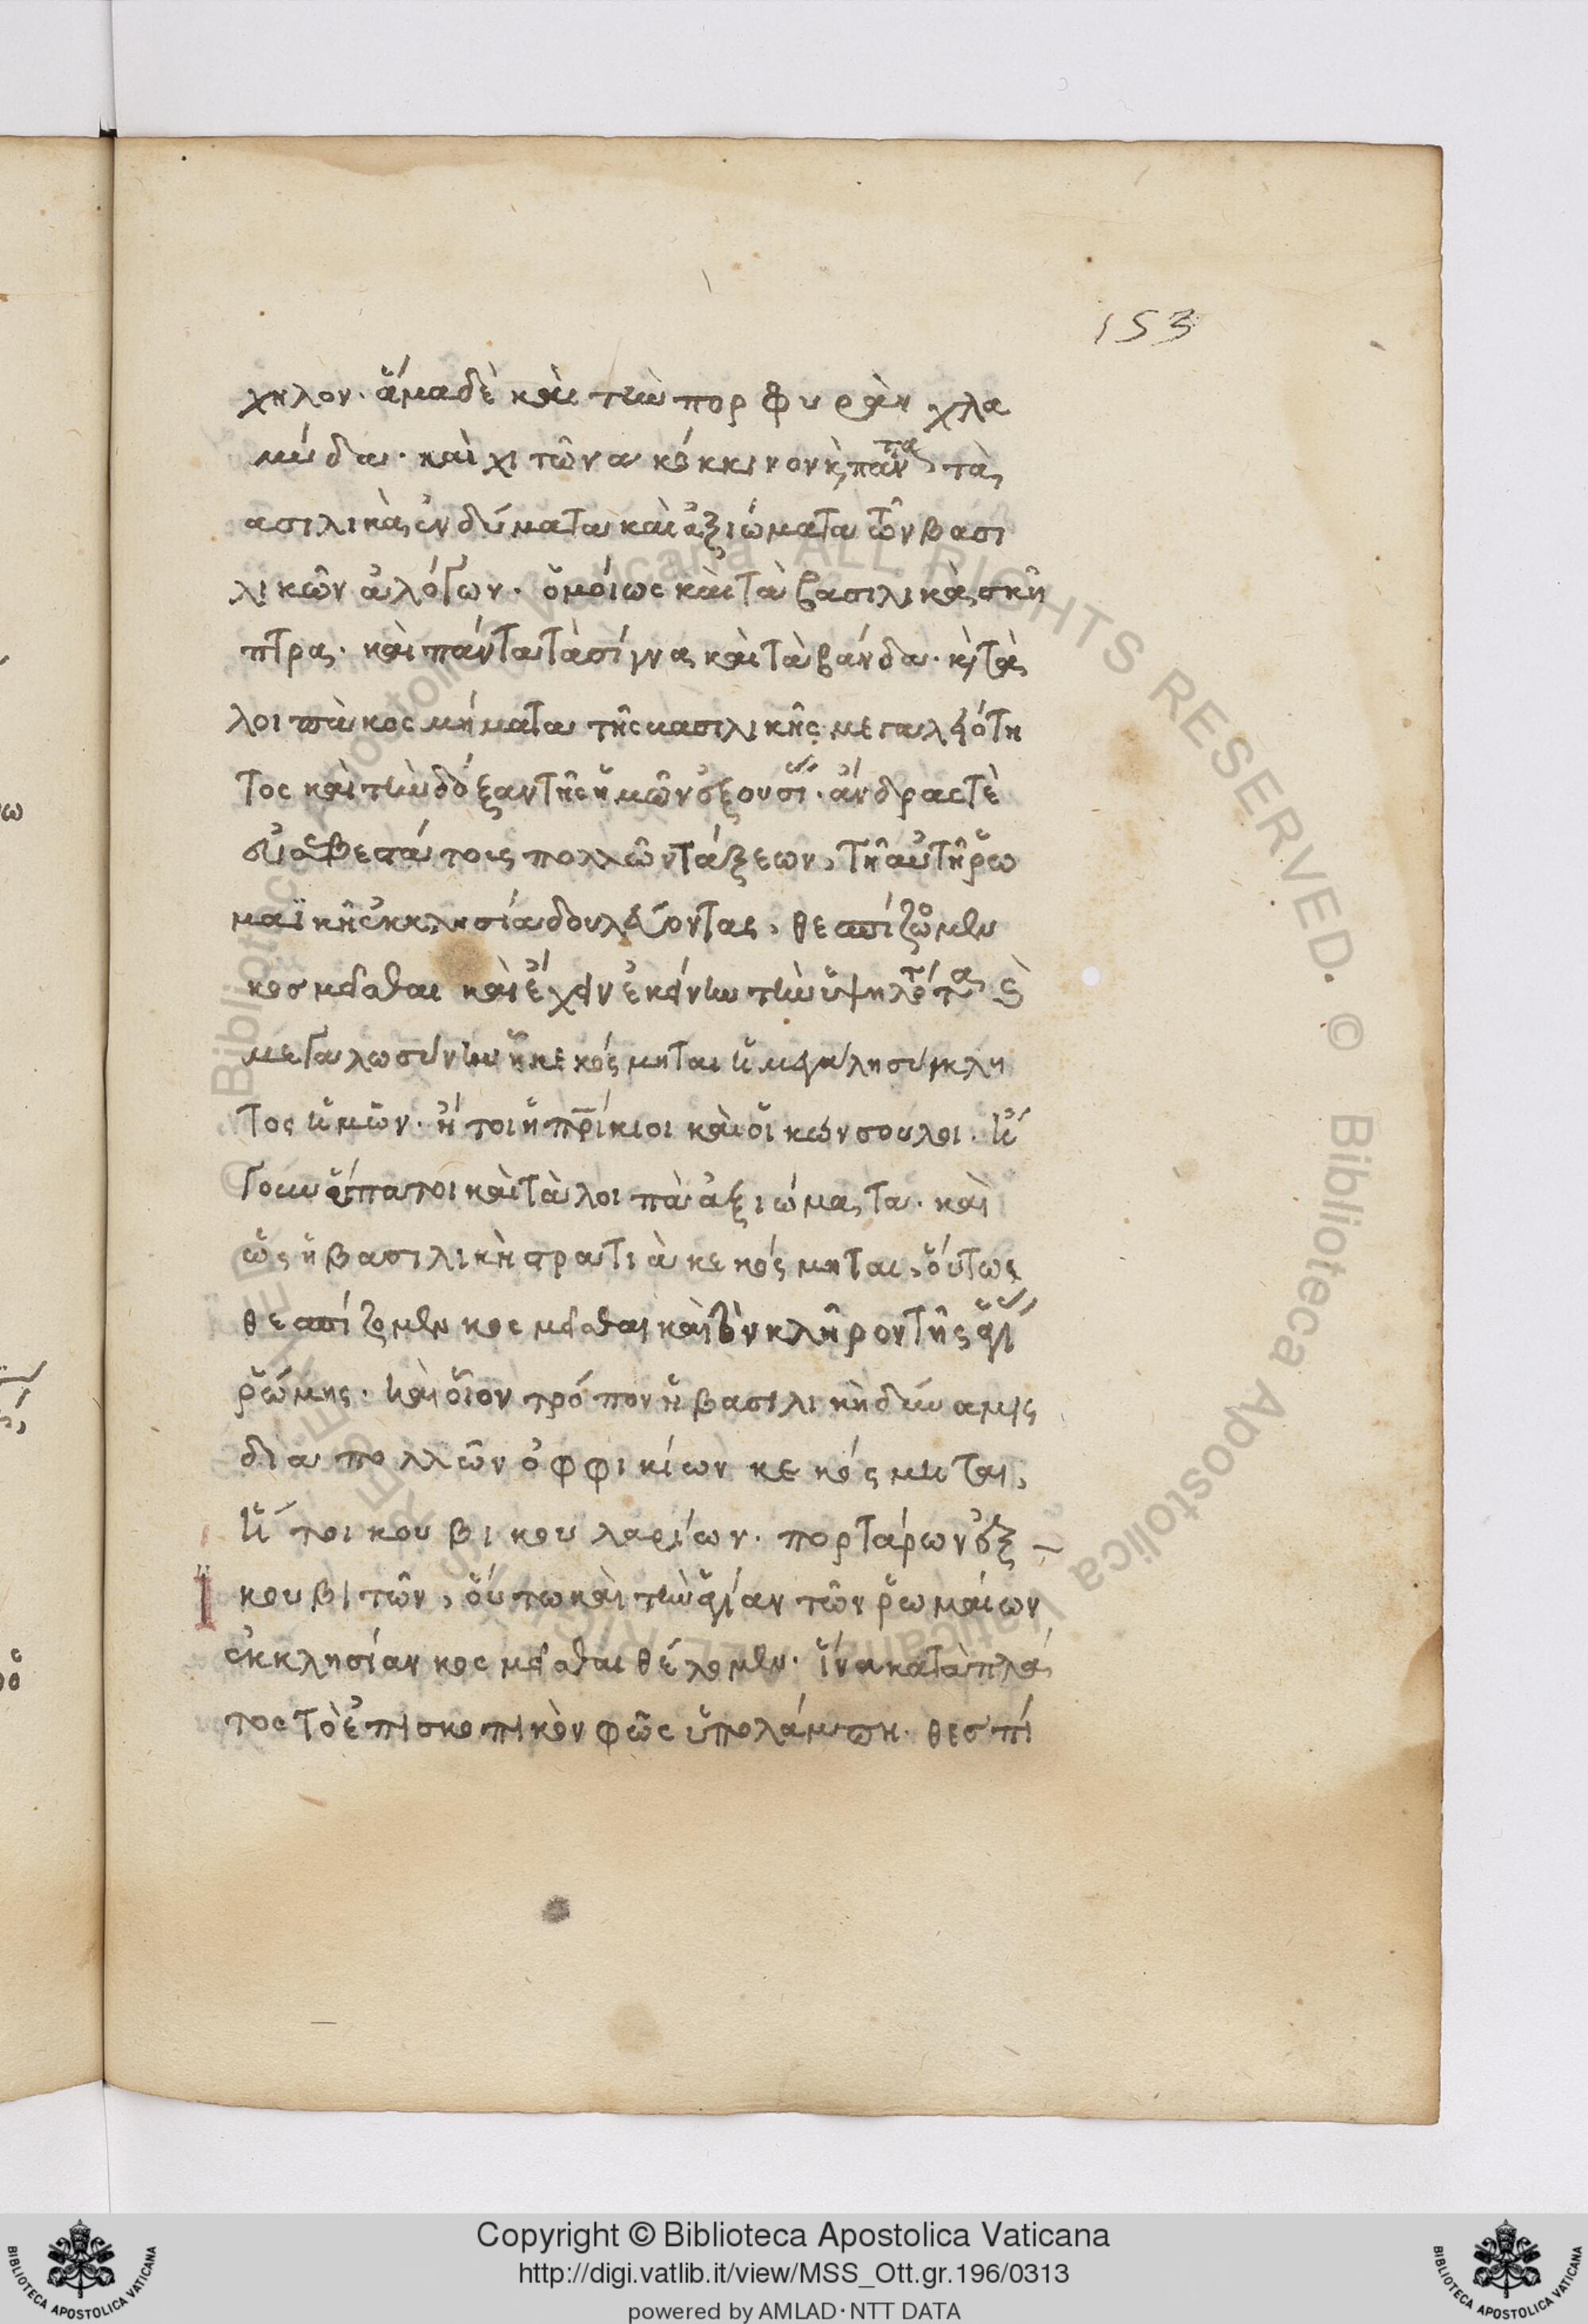 153
χηλον. ἅμα δὲ καὶ τὴν πορφυρὰν χλα
μύδα. καὶ χιτῶνα κόκκινον κ̀ πάντα τὰ
ασιλικὰ ἐνδύματα καὶ ἀξιώματα τῶν βασι
λικῶν ἀλόγων. ὁμοίως καὶ τὰ βασιλικὰ σκῆ
πτρα. καὶ πάντα τὰ σίγνα καὶ τὰ βάνδα. κ̀ τὰ
λοιπὰ κοσμήματα τῆς βασιλικῆς μεγαλειότη
τος καὶ τὴν δόξαν τῆς ἡμῶν ἐξουσί. ἄνδρας τὲ
πολλῶν τάξεων, τῆ αὐτῆ ῥω
μαϊκῆ ἐκκλησία δουλεύοντας, θεσπίζομεν
κοσμεῖσθαι καὶ ἔχειν ἐκείνην τὴν ὑψηλότητα
μεγαλωσύνην ἧ κεκόσμηται ἡ μεγάλη σύγκλη
τος ἡμῶν. ἤτοι ἡ πρίκιοι καὶ οἱ κώνσουλοι. ἤ
γουν ὕπατοι καὶ τὰ λοιπὰ ἀξιώματα. καὶ
ὡς ἡ βασιλικὴ στρατιὰ κεκόσμηται, οὕτως
θεσπίζομεν κοσμεῖσθαι καὶ τὸν κλῆρον τῆς ἁγί
ῥώμης. καὶ οἷον τρόπον ἡ βασιλικὴ δύναμις
διὰ πολλῶν ὀφφικίων κεκόσμηται,
ἤτοι κουβικουλαρίων. πορταρων ἐξ
κουβιτῶν, οὕτω καὶ τὴν ἁγίαν τῶν ῥωμαίων
ἐκκλησίαν κοσμεῖσθαι θέλομεν. ἵνα κατὰ πλά
τος τὸ ἐπισκοπικὸν φῶς ὑπολάμπη. θεσπί
Copyright © Biblioteca Apostolica Vaticana
http://digi.vatlib.it/view/MSS_Ott.gr.196/0313
powered by AMLAD·NTT DATA